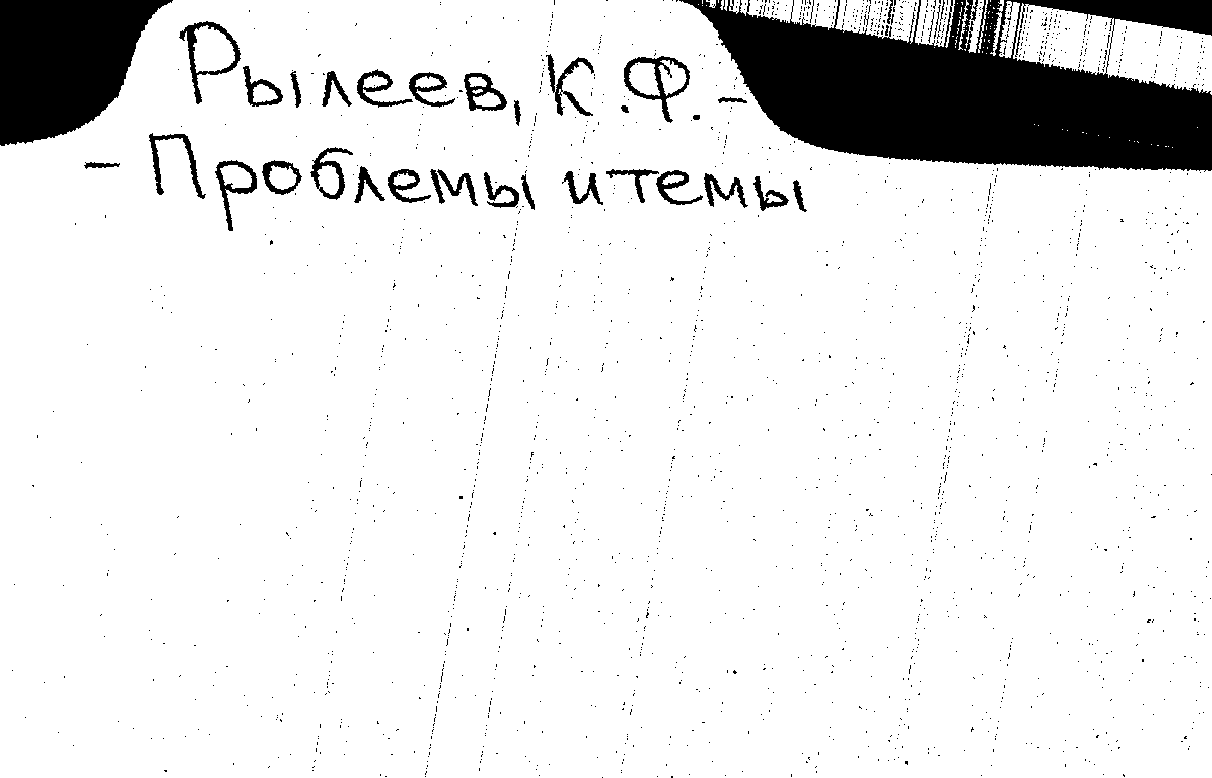 Рылеев, К.Ф.-
- Проблемы и темы